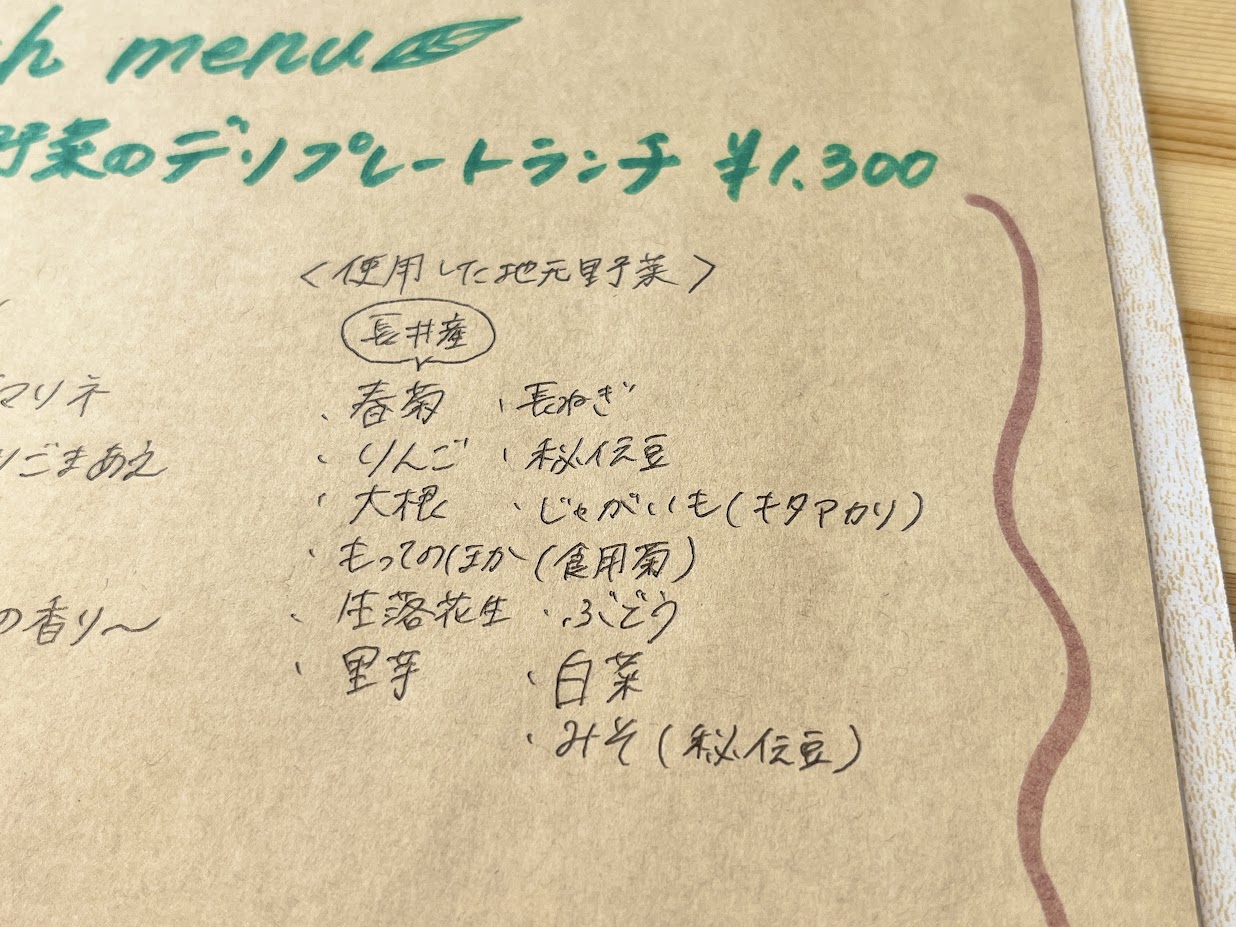 h menu
野菜のデリプレートランチ ¥1.300
<使用した地元野菜>
長井産
・春菊 ・長ねぎ
マリネ
ごまあえ
・りんご ・秘伝豆
・大根 ・じゃがいも(キタアカリ)
・もってのほか(食用菊)
の香り〜
・生落花生 ・ぶどう
・里芋 ・白菜
・みそ(秘伝豆)